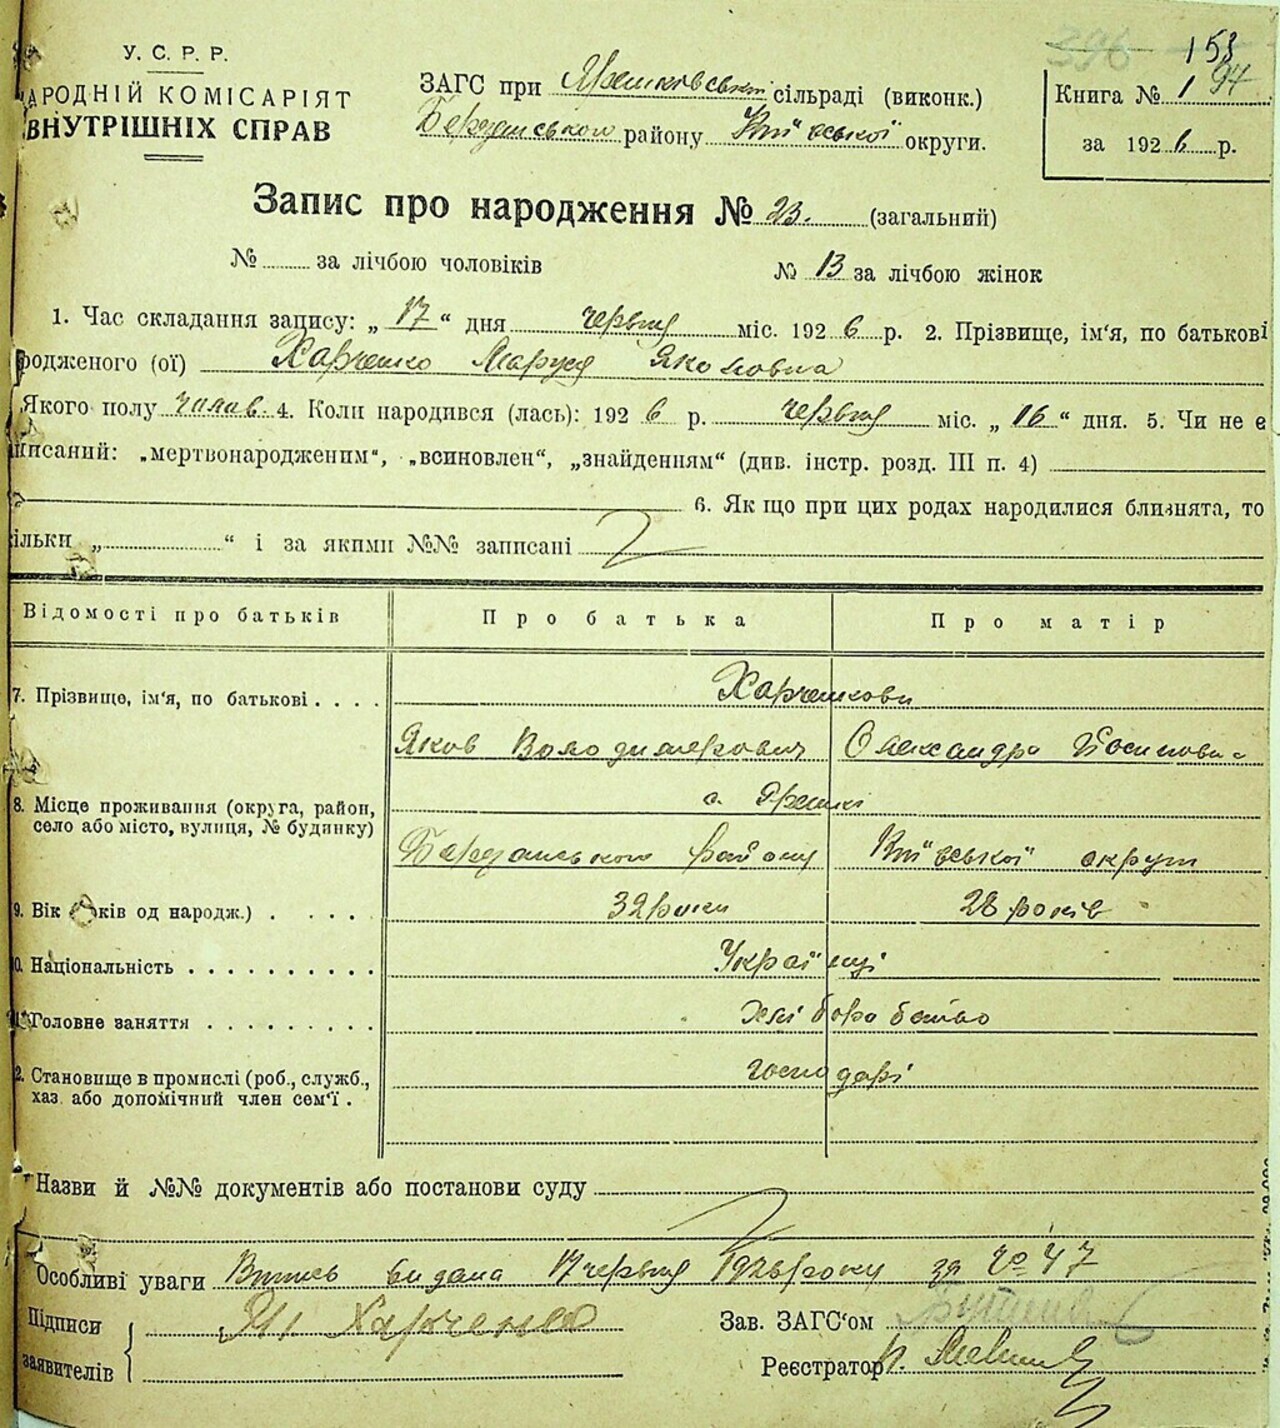 396 153
У. С. Р. Р.
НАРОДНІЙ КОМІСАРІЯТ
ВНУТРІШНІХ СПРАВ
ЗАГС при сільраді (виконк.)
району Київської округи.
Книга № 1 94
за 1926 р.
Запис про народження № 23. (загальний)
№ за лічбою чоловіків № 13 за лічбою жінок
1. Час складання запису: „17“ дня червня міс. 1926 р. 2. Прізвище, ім'я, по батькові
родженого (ої) Харченко Маруся Якововна
Якого полу 4. Коли народився (лась): 1926 р. червня міс. „16“ дня. 5. Чи не є
писаний: „мертвонародженим“, „всиновлен“, „знайденням“ (див. інстр. розд. III п. 4)
6. Як що при цих родах народилися близнята, то
ільки „ “ і за якими №№ записані
Відомості про батьків Про батька Про матір
7. Прізвище, ім'я, по батькові . . . . Харченкови
Яков Володимерович Олександра
8. Місце проживання (округа, район, село або місто, вулиця, № будинку) с. Ярешкі
району Київської округи
9. Вік (років од народж.) . . . . 32 роки 28 років
0. Національність . . . . . . . . . . Українці
Головне заняття . . . . . . . . . Хліборобство
2. Становище в промислі (роб., служб., хаз. або допомічний член сем'ї . господарі
Назви й №№ документів або постанови суду
Особливі уваги Витись видана 17 червня 1926 року за № 47
Підписи
заявителів
Харченко
Зав. ЗАГС'ом
Реєстратор